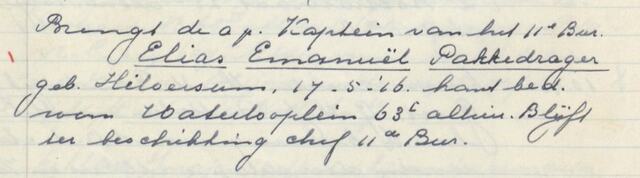 Brengt de a p. Kaptein van het 11e Bur.
Elias Emanuël Pakkedrager
geb. Hilversum, 17-5-'16. kant bed.
won Waterlooplein 63c alhier. Blijft
ter beschikking chef 11de Bur.